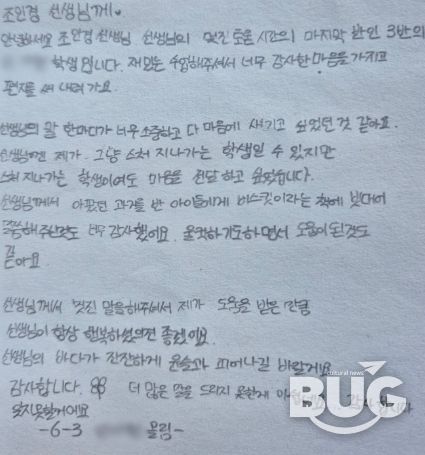 조인경 선생님께
안녕하세요 조인경 선생님 선생님의 멋진 도움 시간의 마지막 반인 3반의
학생입니다. 재밌는 수업해주셔서 너무 감사한 마음을 가지고
편지를 써 내려가요.
선생님의 말 한마디가 너무 소중하고 다 마음에 새기고 싶었던 것 같아요.
선생님껜 제가 그냥 스쳐 지나가는 학생일 수 있지만
스쳐 지나가는 학생이여도 마음을 전달하고 싶었습니다.
선생님께서 아팠던 과거를 반 아이들에게 비스킷이라는 책에 빗대어
말씀해주신것도 너무 감사했어요. 울컥하기도하면서 도움이 된것도
같아요
선생님께서 멋진 말을해주셔서 제가 도움을 받은 만큼
선생님이 항상 행복하셨으면 좋겠어요.
선생님의 바다가 잔잔하게 윤슬과 피어나길 바랄게요
감사합니다. 더 많은 말을 드리지 못한게 감사합니다
잊지못할거에요
-6-3 올림-
cultural news
BUG